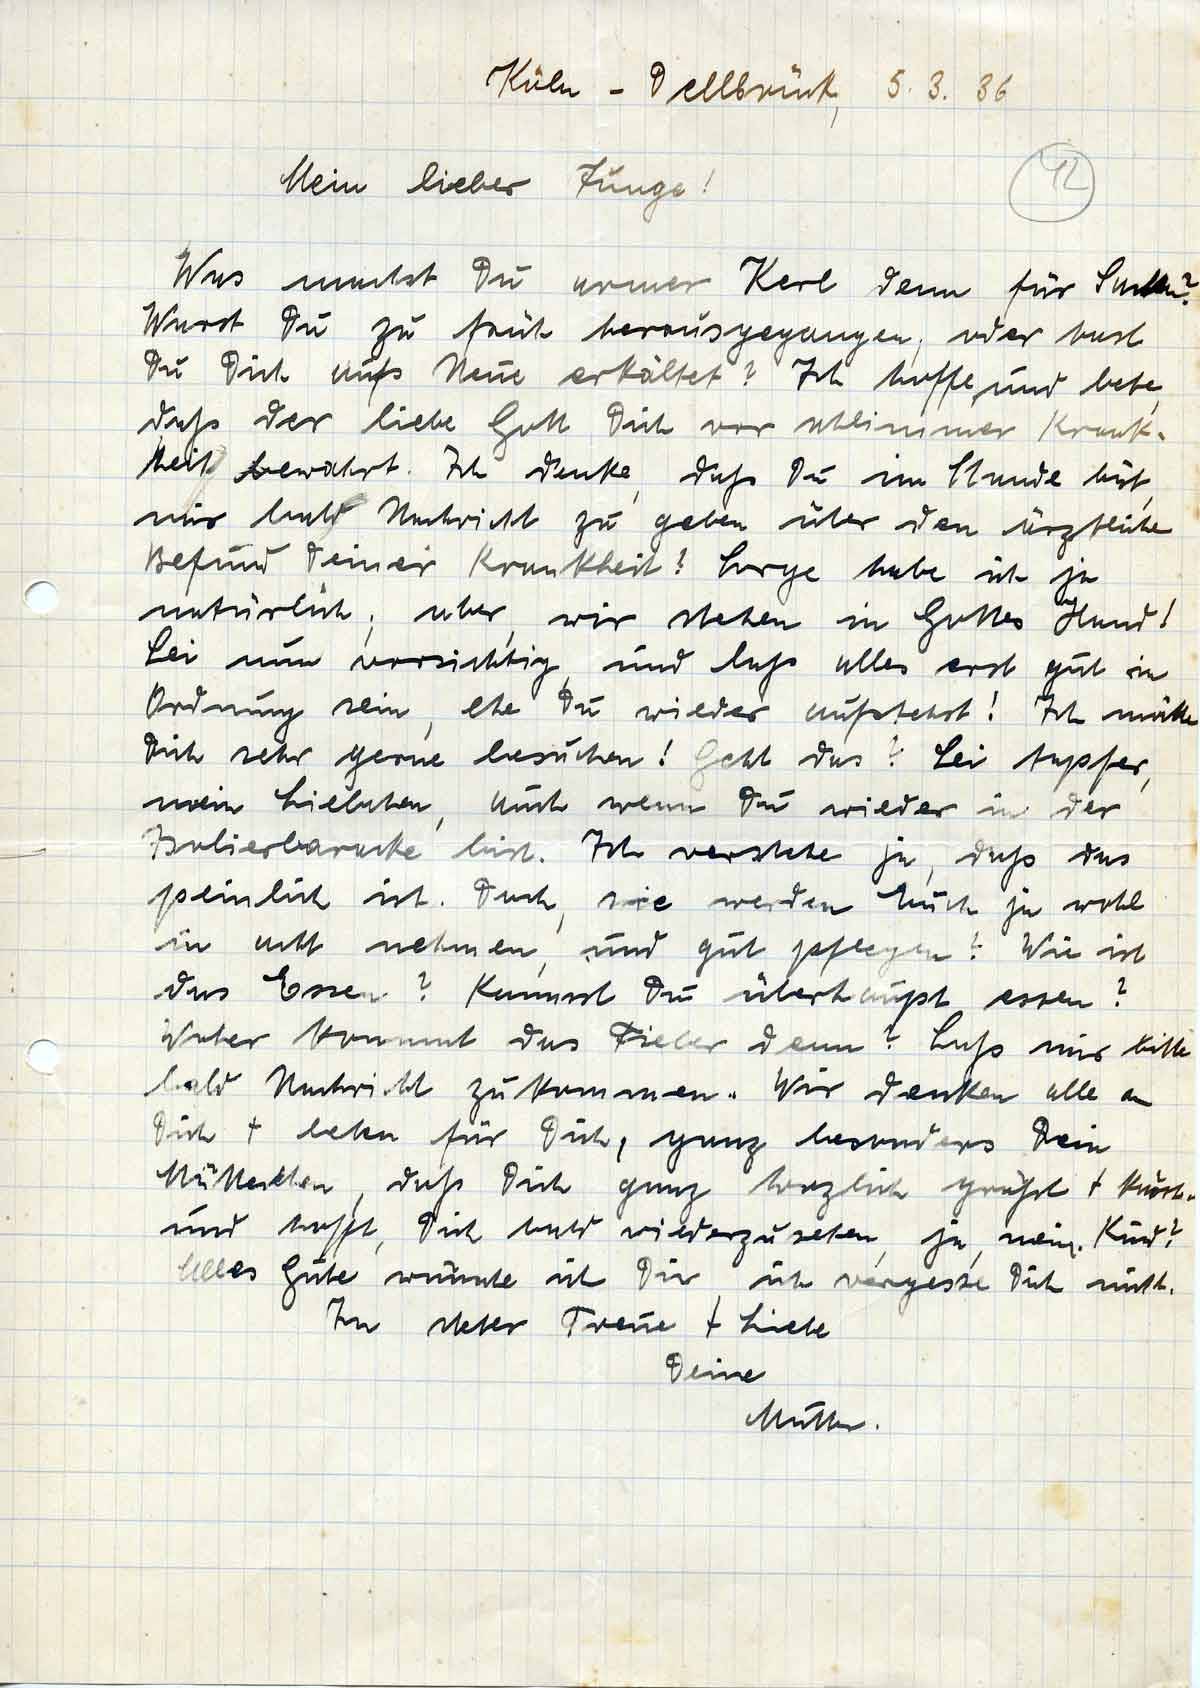 Köln - Dellbrück, 5. 3. 36
42
Mein lieber Junge!
Was machst Du armer Kerl denn für Sachen?
Warst Du zu früh herausgegangen, oder hast
Du Dich aufs Neue erkältet? Ich hoffe und bete,
daß der liebe Gott Dich vor schlimmer Krank-
heit bewahrt. Ich denke, daß Du im Stande bist,
mir bald Nachricht zu geben über den ärztliche
Befund Deiner Krankheit? Sorge habe ich ja
natürlich, aber, wir stehen in Gottes Hand!
Sei nun vorsichtig, und laß alles erst gut in
Ordnung sein, ehe Du wieder aufstehst! Ich möchte
Dich sehr gerne besuchen! Geht das? Sei tapfer,
mein Liebchen, auch wenn Du wieder in der
Isolierbaracke bist. Ich verstehe ja, daß das
peinlich ist. Doch, sie werden Euch ja wohl
in acht nehmen, und gut pflegen? Wie ist
das Essen? Kannst Du überhaupt essen?
Woher kommt das Fieber denn? Laß mir bitte
bald Nachricht zukommen. Wir denken alle an
Dich + beten für Dich, ganz besonders Dein
Mütterchen, daß Dich ganz herzlich grüßt + küsst.
und hofft, Dich bald wiederzusehen, ja, mein Kind?
Alles Gute wünsche ich Dir, ich vergesse Dich nicht.
In steter Treue + Liebe
Deine
Mutter.